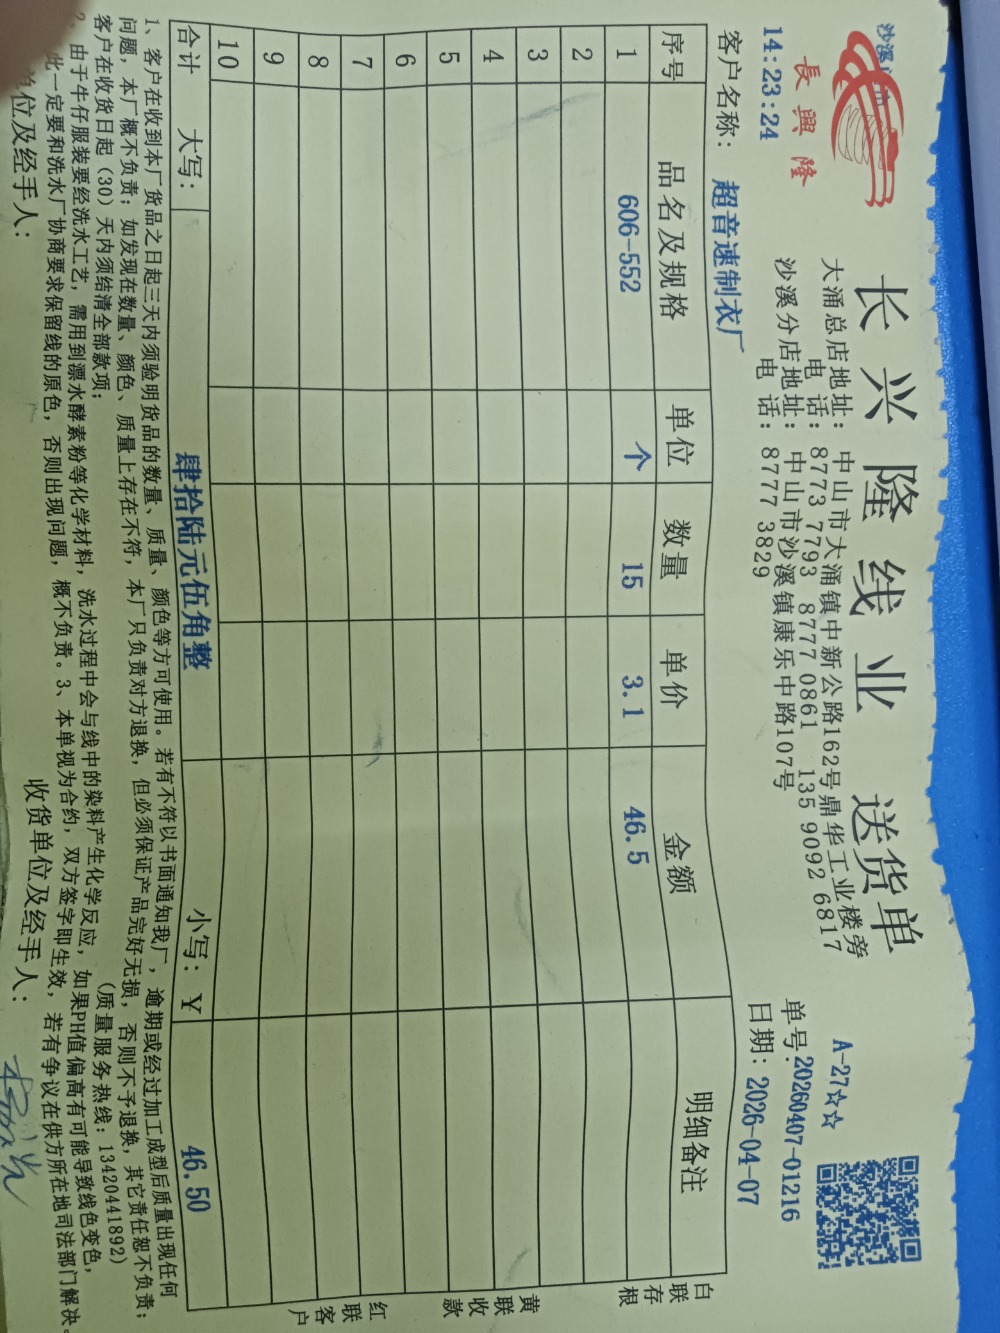 長興隆
长兴隆线业 送货单
A-27☆☆
大涌总店地址: 中山市大涌镇中新公路162号鼎华工业楼旁
电 话: 8773 7793 8777 0861 135 9092 6817
沙溪分店地址: 中山市沙溪镇康乐中路107号
电 话: 8777 3829
14:23:24
单号:20260407-01216
客户名称: 超音速制衣厂
日期: 2026-04-07
序号 品名及规格 单位 数量 单价 金额 明细备注
1 606-552 个 15 3.1 46.5
2
3
4
5
6
7
8
9
10
合计 大写: 肆拾陆元伍角整 小写: ¥ 46.50
白联存根
黄联收款
红联客户
1、客户在收到本厂货品之日起三天内须验明货品的数量、质量、颜色等方可使用。若有不符以书面通知我厂,逾期或经过加工成型后质量出现任何
问题,本厂概不负责;如发现在数量、颜色、质量上存在不符,本厂只负责对方退换,但必须保证产品完好无损,否则不予退换,其它责任恕不负责;
客户在收货日起(30)天内须结清全部款项; (质量服务热线: 13420441892)
2、由于牛仔服装要经洗水工艺,需用到漂水酵素粉等化学材料,洗水过程中会与线中的染料产生化学反应,如果PH值偏高有可能导致线色变色,
此一定要和洗水厂协商要求保留线的原色,否则出现问题,概不负责。3、本单视为合约,双方签字即生效,若有争议在供方所在地司法部门解决。
单位及经手人: 收货单位及经手人: